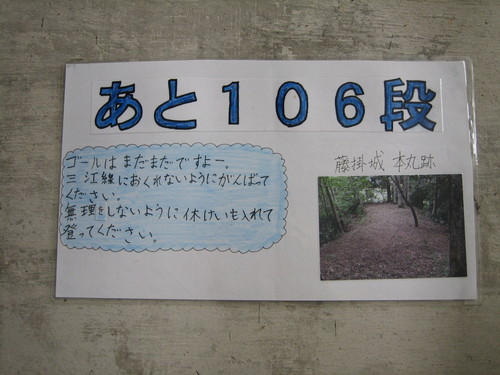 あと１０６段
ゴールはまだまだですよー。
三江線におくれないようにがんばって
ください。
無理をしないように休けいも入れて
登ってください。
藤掛城 本丸跡